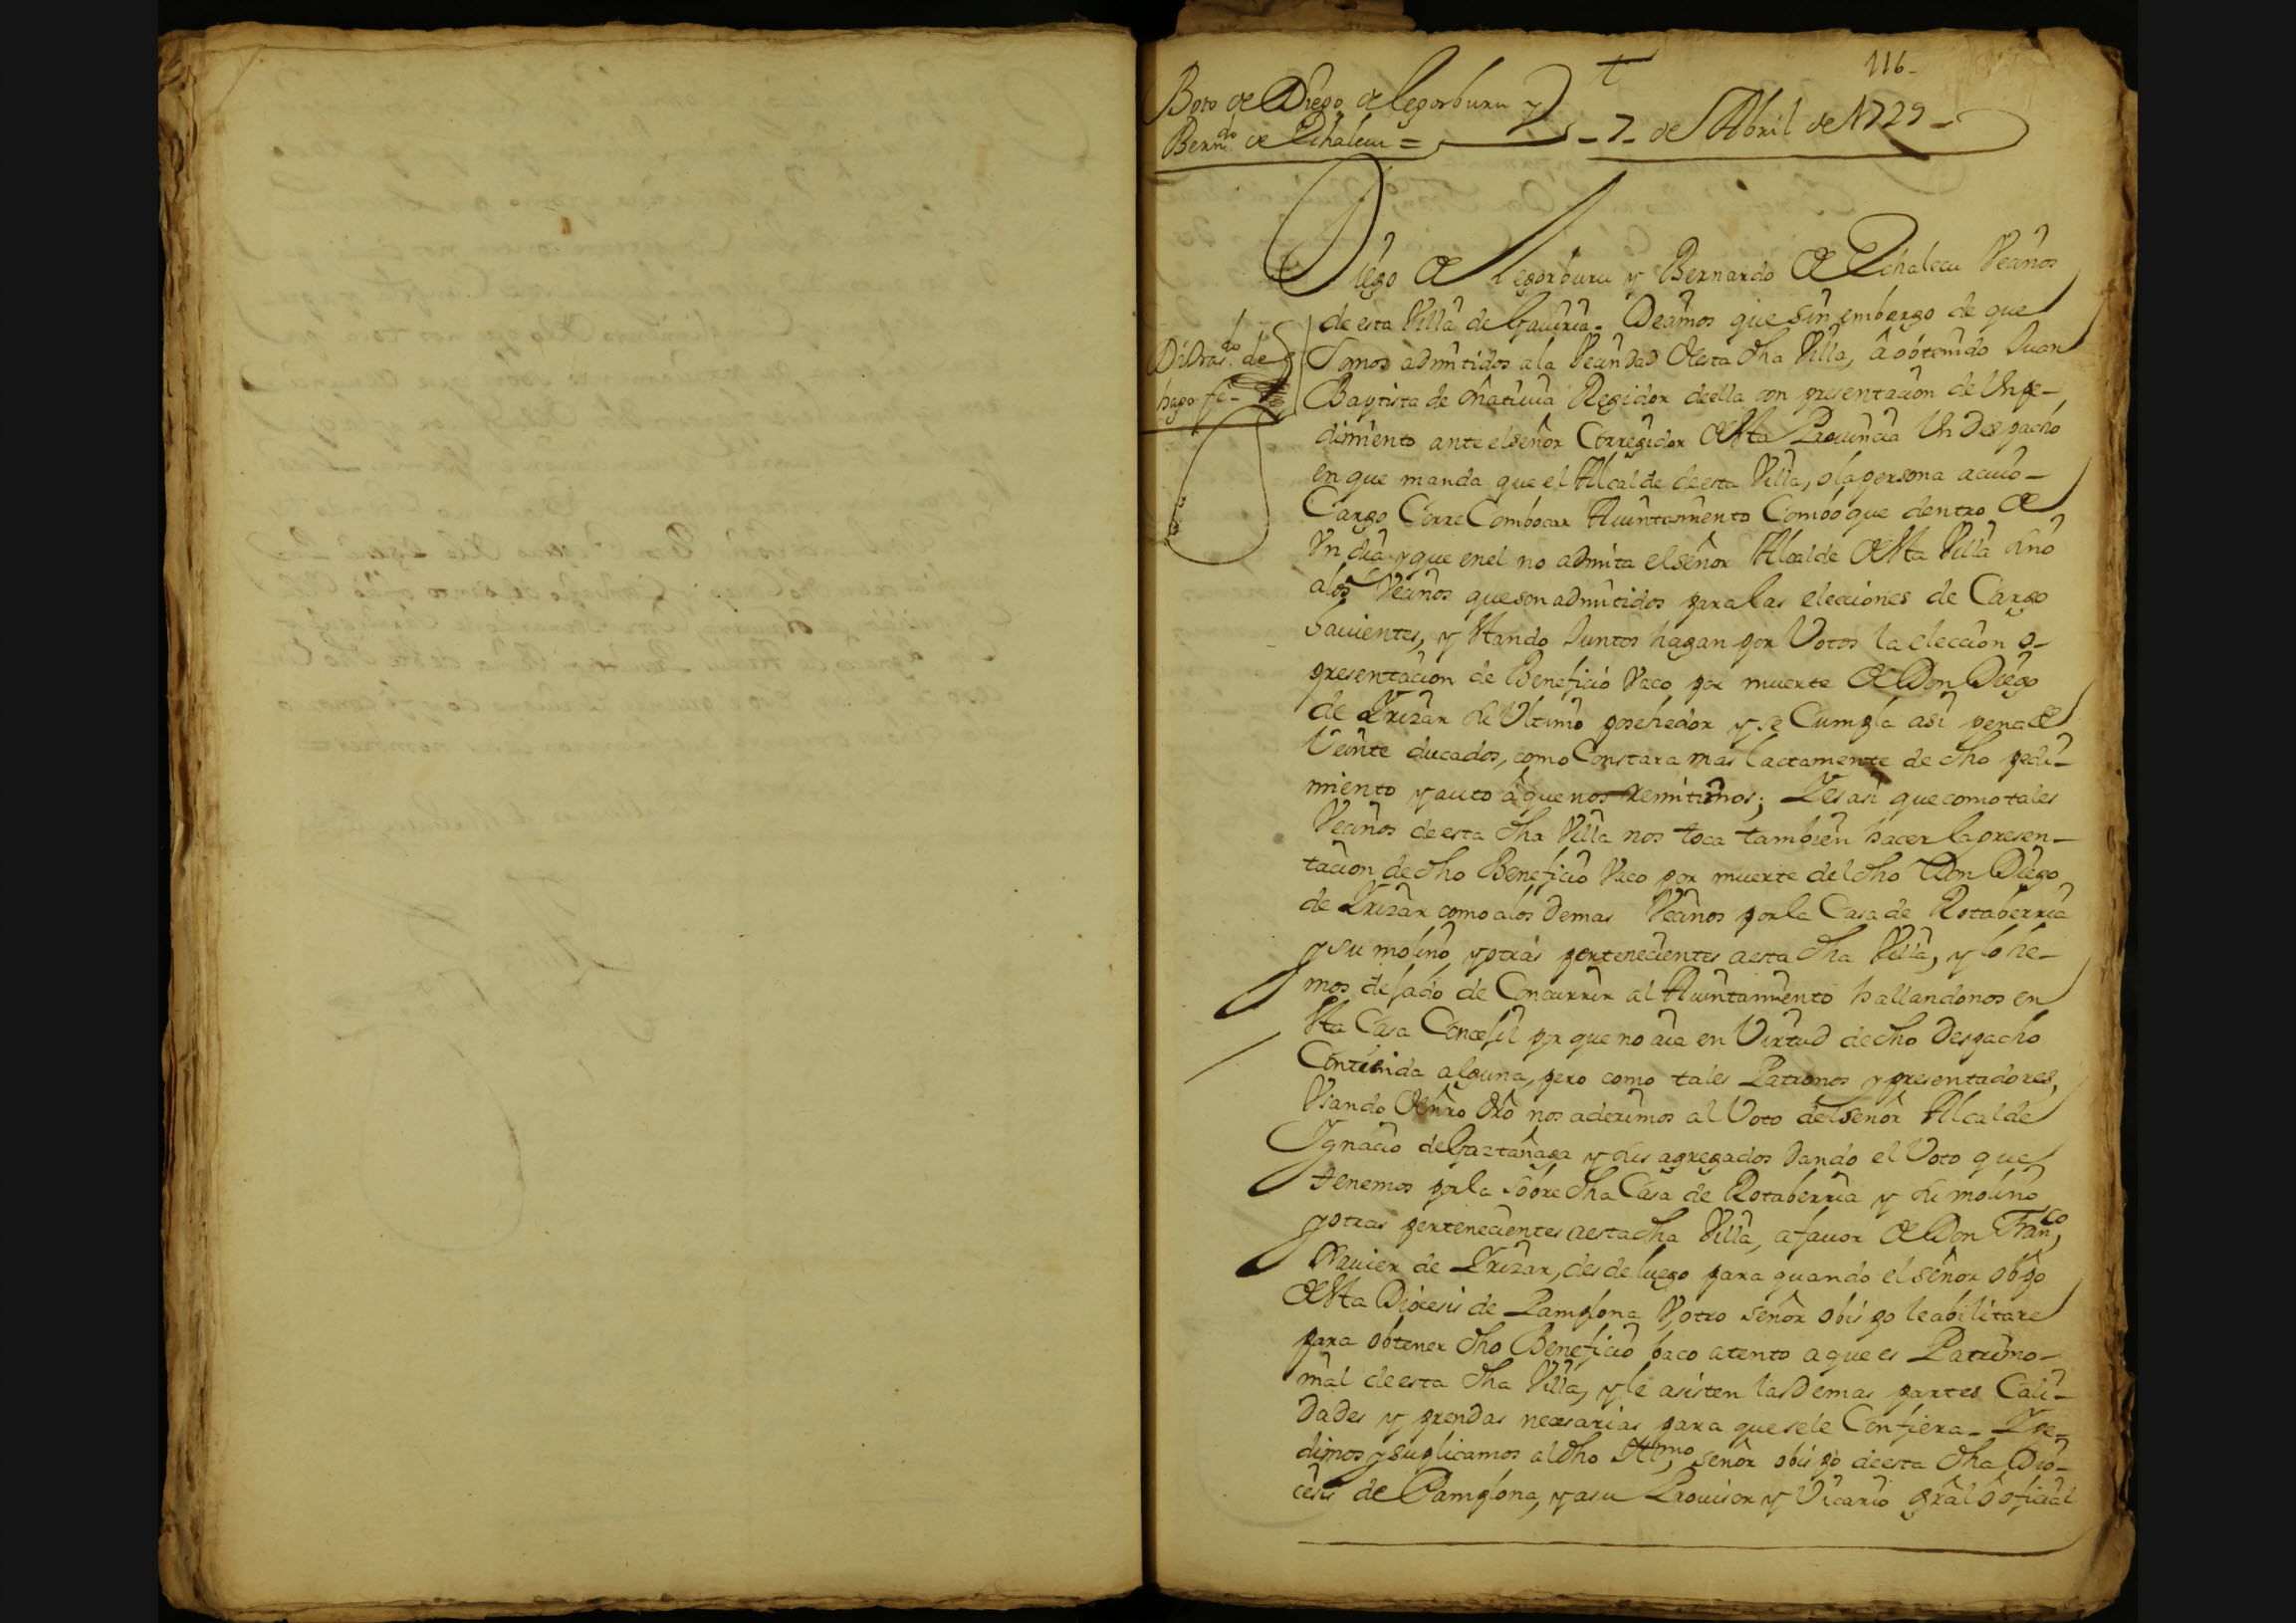 116-
Boto de Diego de legorburu y
Bern.do de Echalecu = - 7 - de Abril de 1729 -
Diego de Legorburu y Bernardo de Echalecu Vecinos
de esta Villa de Gauiria. Decimos que sin embargo de que
Di tras.do de
hago fe -
Somos admitidos a la Vecindad desta dha Villa, â obtenido Juan
Baptista de Regidor de ella con presentacion de Un pe-
dimiento ante el señor Corregidor desta Prouincia Un Despacho
en que manda que el Alcalde de esta Villa, o la persona a cuio -
Cargo Corre Combocar Aiuntamiento Comboque dentro de
Un dia y que en el no admita el señor Alcalde desta Villa sino
alos Vecinos que son admitidos para las elecciones de Cargo
hauientes, y stando Juntos hagan por Votos la eleccion o -
presentacion de Beneficio Vaco por muerte de Don Diego
de Yrizar su Ultimo posehedor y se Cumpla asi pena de
Veinte ducados, como Constara mas lactamente de dho pedi-
miento y auto â que nos remitimos; Y es asi que como tales
Vecinos de esta dha Villa nos toca tambien hacer la presen-
tacion de dho Beneficio Vaco por muerte del dho Don Diego
de Yrizar como a los demas Vecinos por la Casa de Rotaberria
y su molino, y otras pertenecientes a esta dha Villa, y lo he-
mos dejado de Concurrir al Aiuntamiento hallandonos en
sta Casa Concejil por que no aia en Virtud de dho Despacho
Contienda alguna, pero como tales Patronos y presentadores,
Vsando de nro dro nos aderimos al Voto del señor Alcalde
Ygnacio de Gaztañaga y sus agregados dando el Voto que
tenemos por la sobre dha Casa de Rotaberria y su molino
y otras pertenecientes a esta dha Villa, a fauor de Don Fran.co
Xauier de Yrizar, desde luego para quando el señor obpo
desta Diocesis de Pamplona V otro señor obispo le abilitare
para obtener dho Beneficio baco atento a que es Patrimo-
nial de esta dha Villa, y le asisten las demas partes Cali-
dades y prendas necesarias para que se le Confiera - Y pe-
dimos y suplicamos al dho Ill.mo señor obispo de esta dha Dio-
cesis de Pamplona, y a su Prouisor y Vicario gral ô oficial